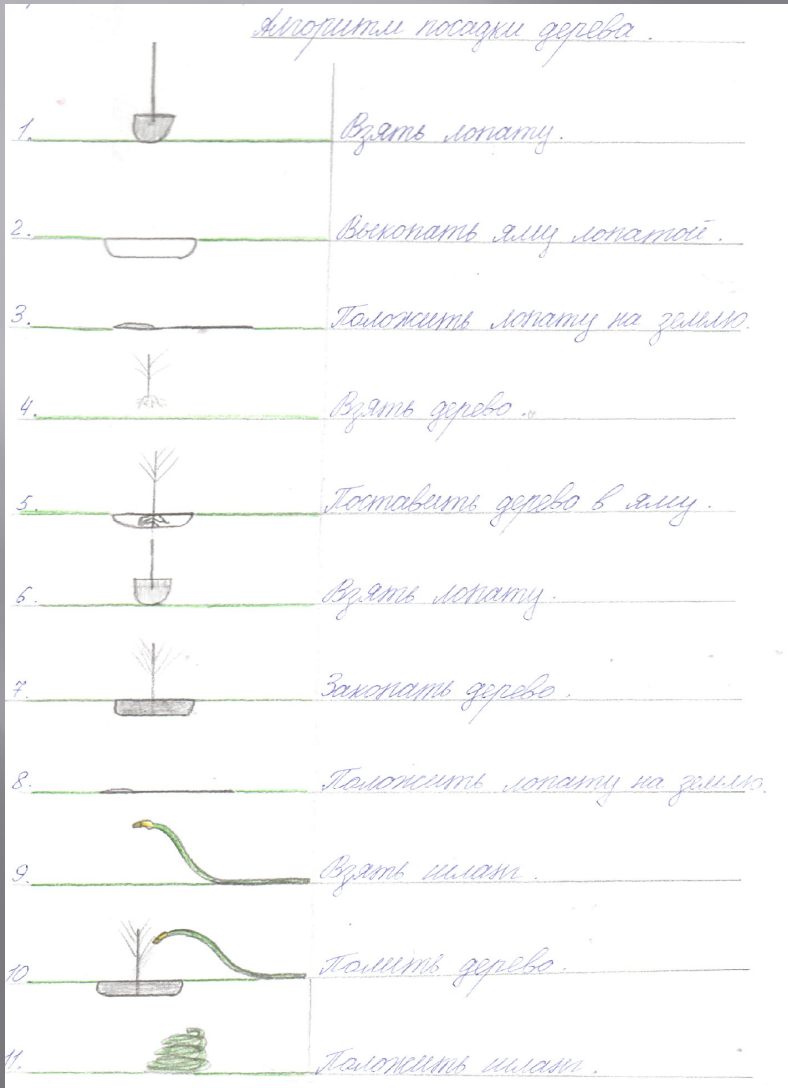 Алгоритм посадки дерева.
1. Взять лопату.
2. Выкопать яму лопатой.
3. Положить лопату на землю.
4. Взять дерево.
5. Поставить дерево в яму.
6. Взять лопату.
7. Закопать дерево.
8. Положить лопату на землю.
9. Взять шланг.
10 Полить дерево.
11. Положить шланг.